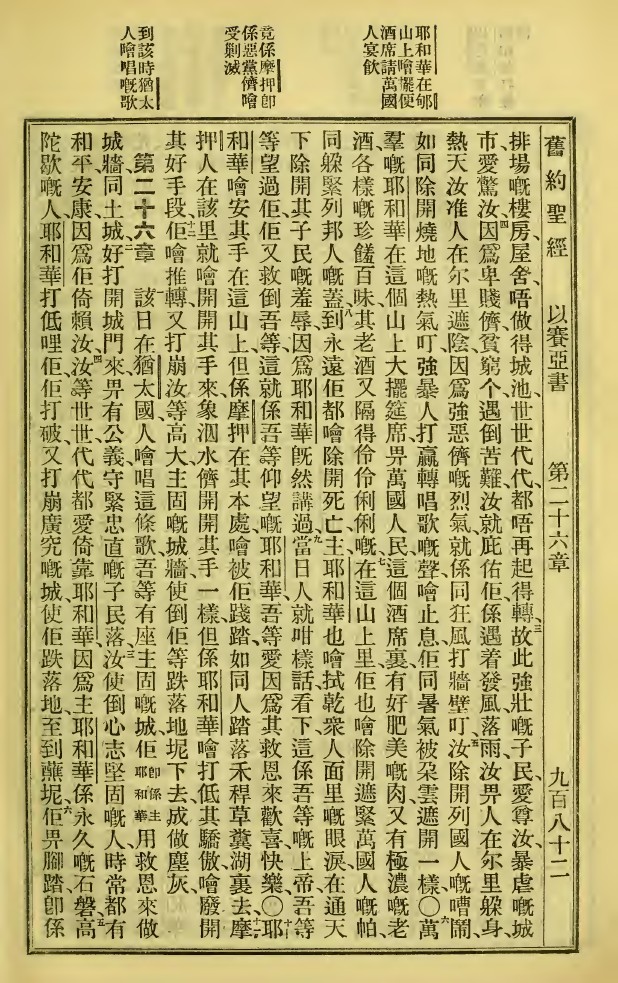 舊約聖經 以賽亞書 第二十六章 九百八十二
耶和華在邨
山上噲擺便
酒席請萬國
人宴飲
竟係摩押卽
係惡黨儕噲
受剿滅
到該時猶太
人噲唱嘅歌
排場嘅樓房屋舍、唔做得城池、世世代代、都唔再起得轉、三故此強壯嘅子民、愛尊汝、暴虐嘅城
市、愛驚汝、四因爲卑賤儕貧窮个遇倒苦難、汝就庇佑佢、係遇着發風落雨、汝畀人在尔里躲身、
熱天汝准人在尔里遮陰、因爲強惡儕嘅烈氣、就係同狂風打牆壁叮、五汝除開列國人嘅嘈鬧、
如同除開燒地嘅熱氣叮、強暴人打贏轉唱歌嘅聲噲止息、佢同暑氣被朶雲遮開一樣、〇六萬
羣嘅耶和華在這個山上、大擺筵席、畀萬國人民、這個酒席裏、有好肥美嘅肉、又有極濃嘅老
酒、各樣嘅珍饈百味、其老酒又隔得伶伶俐俐嘅、七在這山上里、佢也噲除開遮緊萬國人嘅帕、
同躲緊列邦人嘅蓋、八到永遠佢都噲除開死亡、主耶和華也噲拭乾衆人面里嘅眼淚、在通天
下除開其子民嘅羞辱、因爲耶和華旣然講過、九當日人就咁樣話、看下、這係吾等嘅上帝、吾等
等望過佢、佢又救倒吾等、這就係吾等仰望嘅耶和華、吾等愛因爲其救恩來歡喜快樂、〇十耶
和華噲安其手在這山上、但係摩押在其本處、噲被佢踐踏、如同人踏落禾稈草糞湖裏去、十一摩
押人在該里就噲開開其手來、象泅水儕開開其手一樣、但係耶和華噲打低其驕傲、噲廢開
其好手段、十二佢噲推轉、又打崩汝等高大主固嘅城牆、使倒佢等跌落地坭下去、成做塵灰、
第二十六章 一該日在猶太國、人噲唱這條歌、吾等有座主固嘅城、佢卽係主耶和華用救恩來做
城牆同土城、二好打開城門來、畀有公義守緊忠直嘅子民落、三汝使倒心志堅固嘅人、時常都有
和平安康、因爲佢倚賴汝、四汝等世世代代都愛倚靠耶和華、因爲主耶和華、係永久嘅石磐、五高
陀歇嘅人、耶和華打低哩佢、佢打破又打崩廣究嘅城、使佢跌落地、至到蘸坭、六佢畀腳踏、卽係